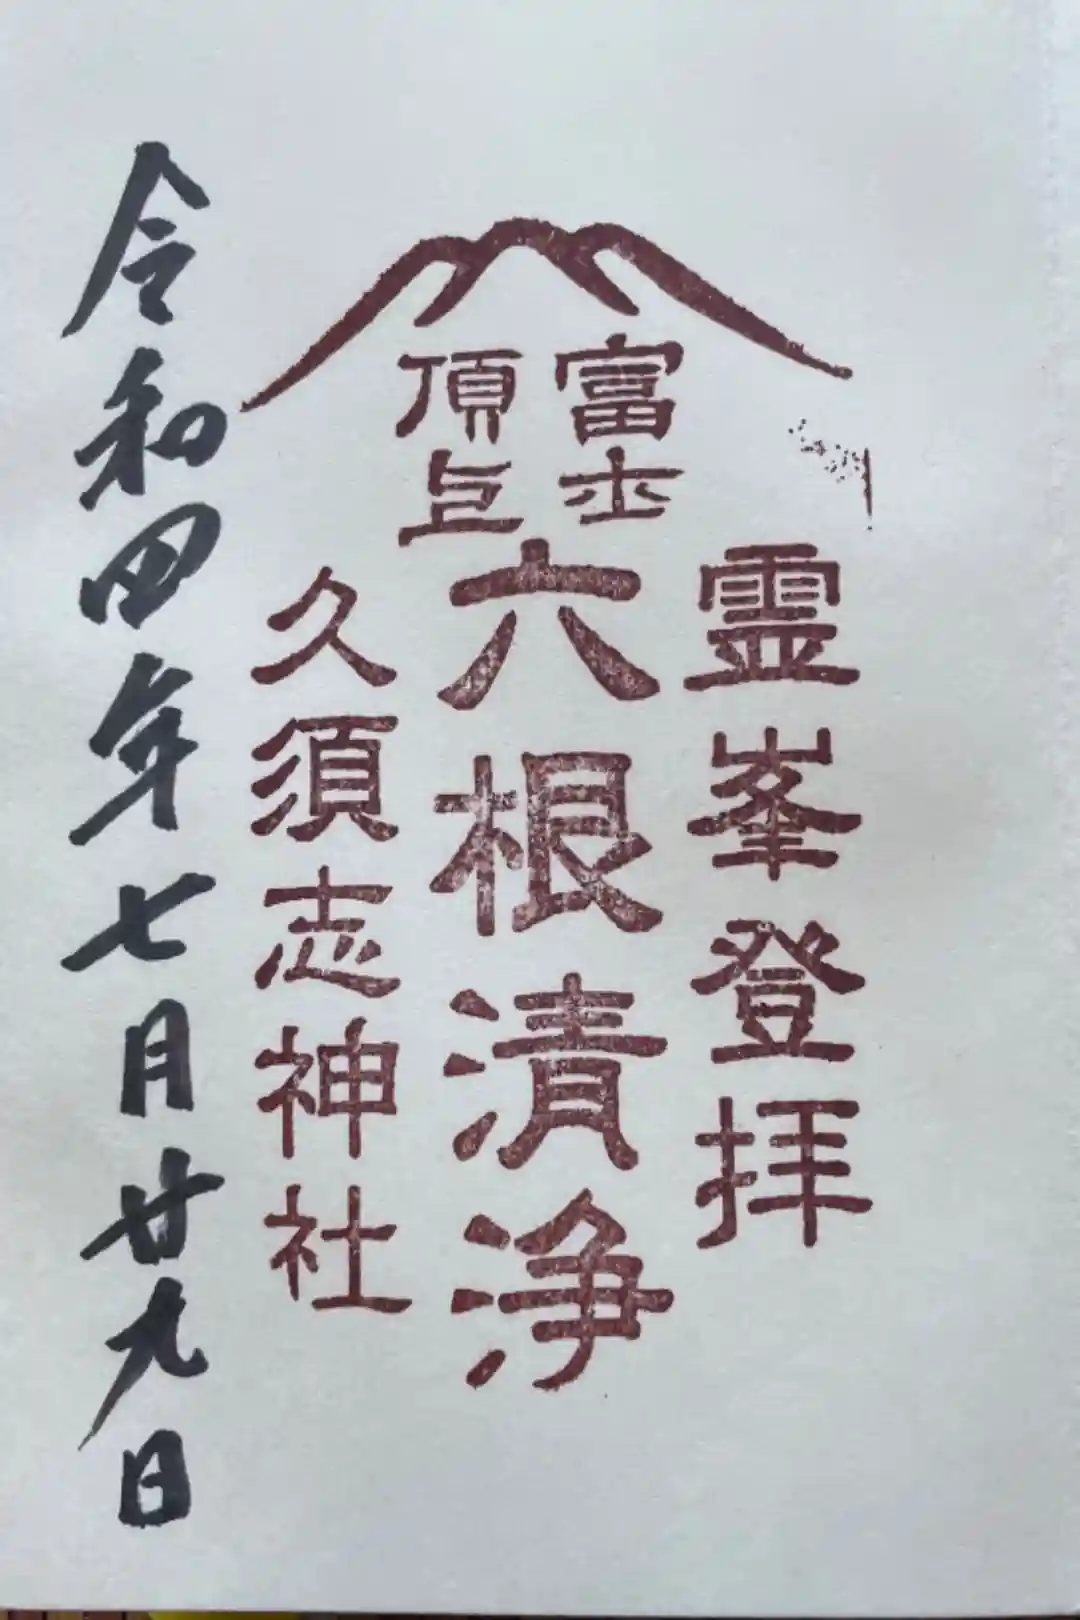 富士
頂上
霊峯登拝
六根清浄
久須志神社
令和四年七月廿九日